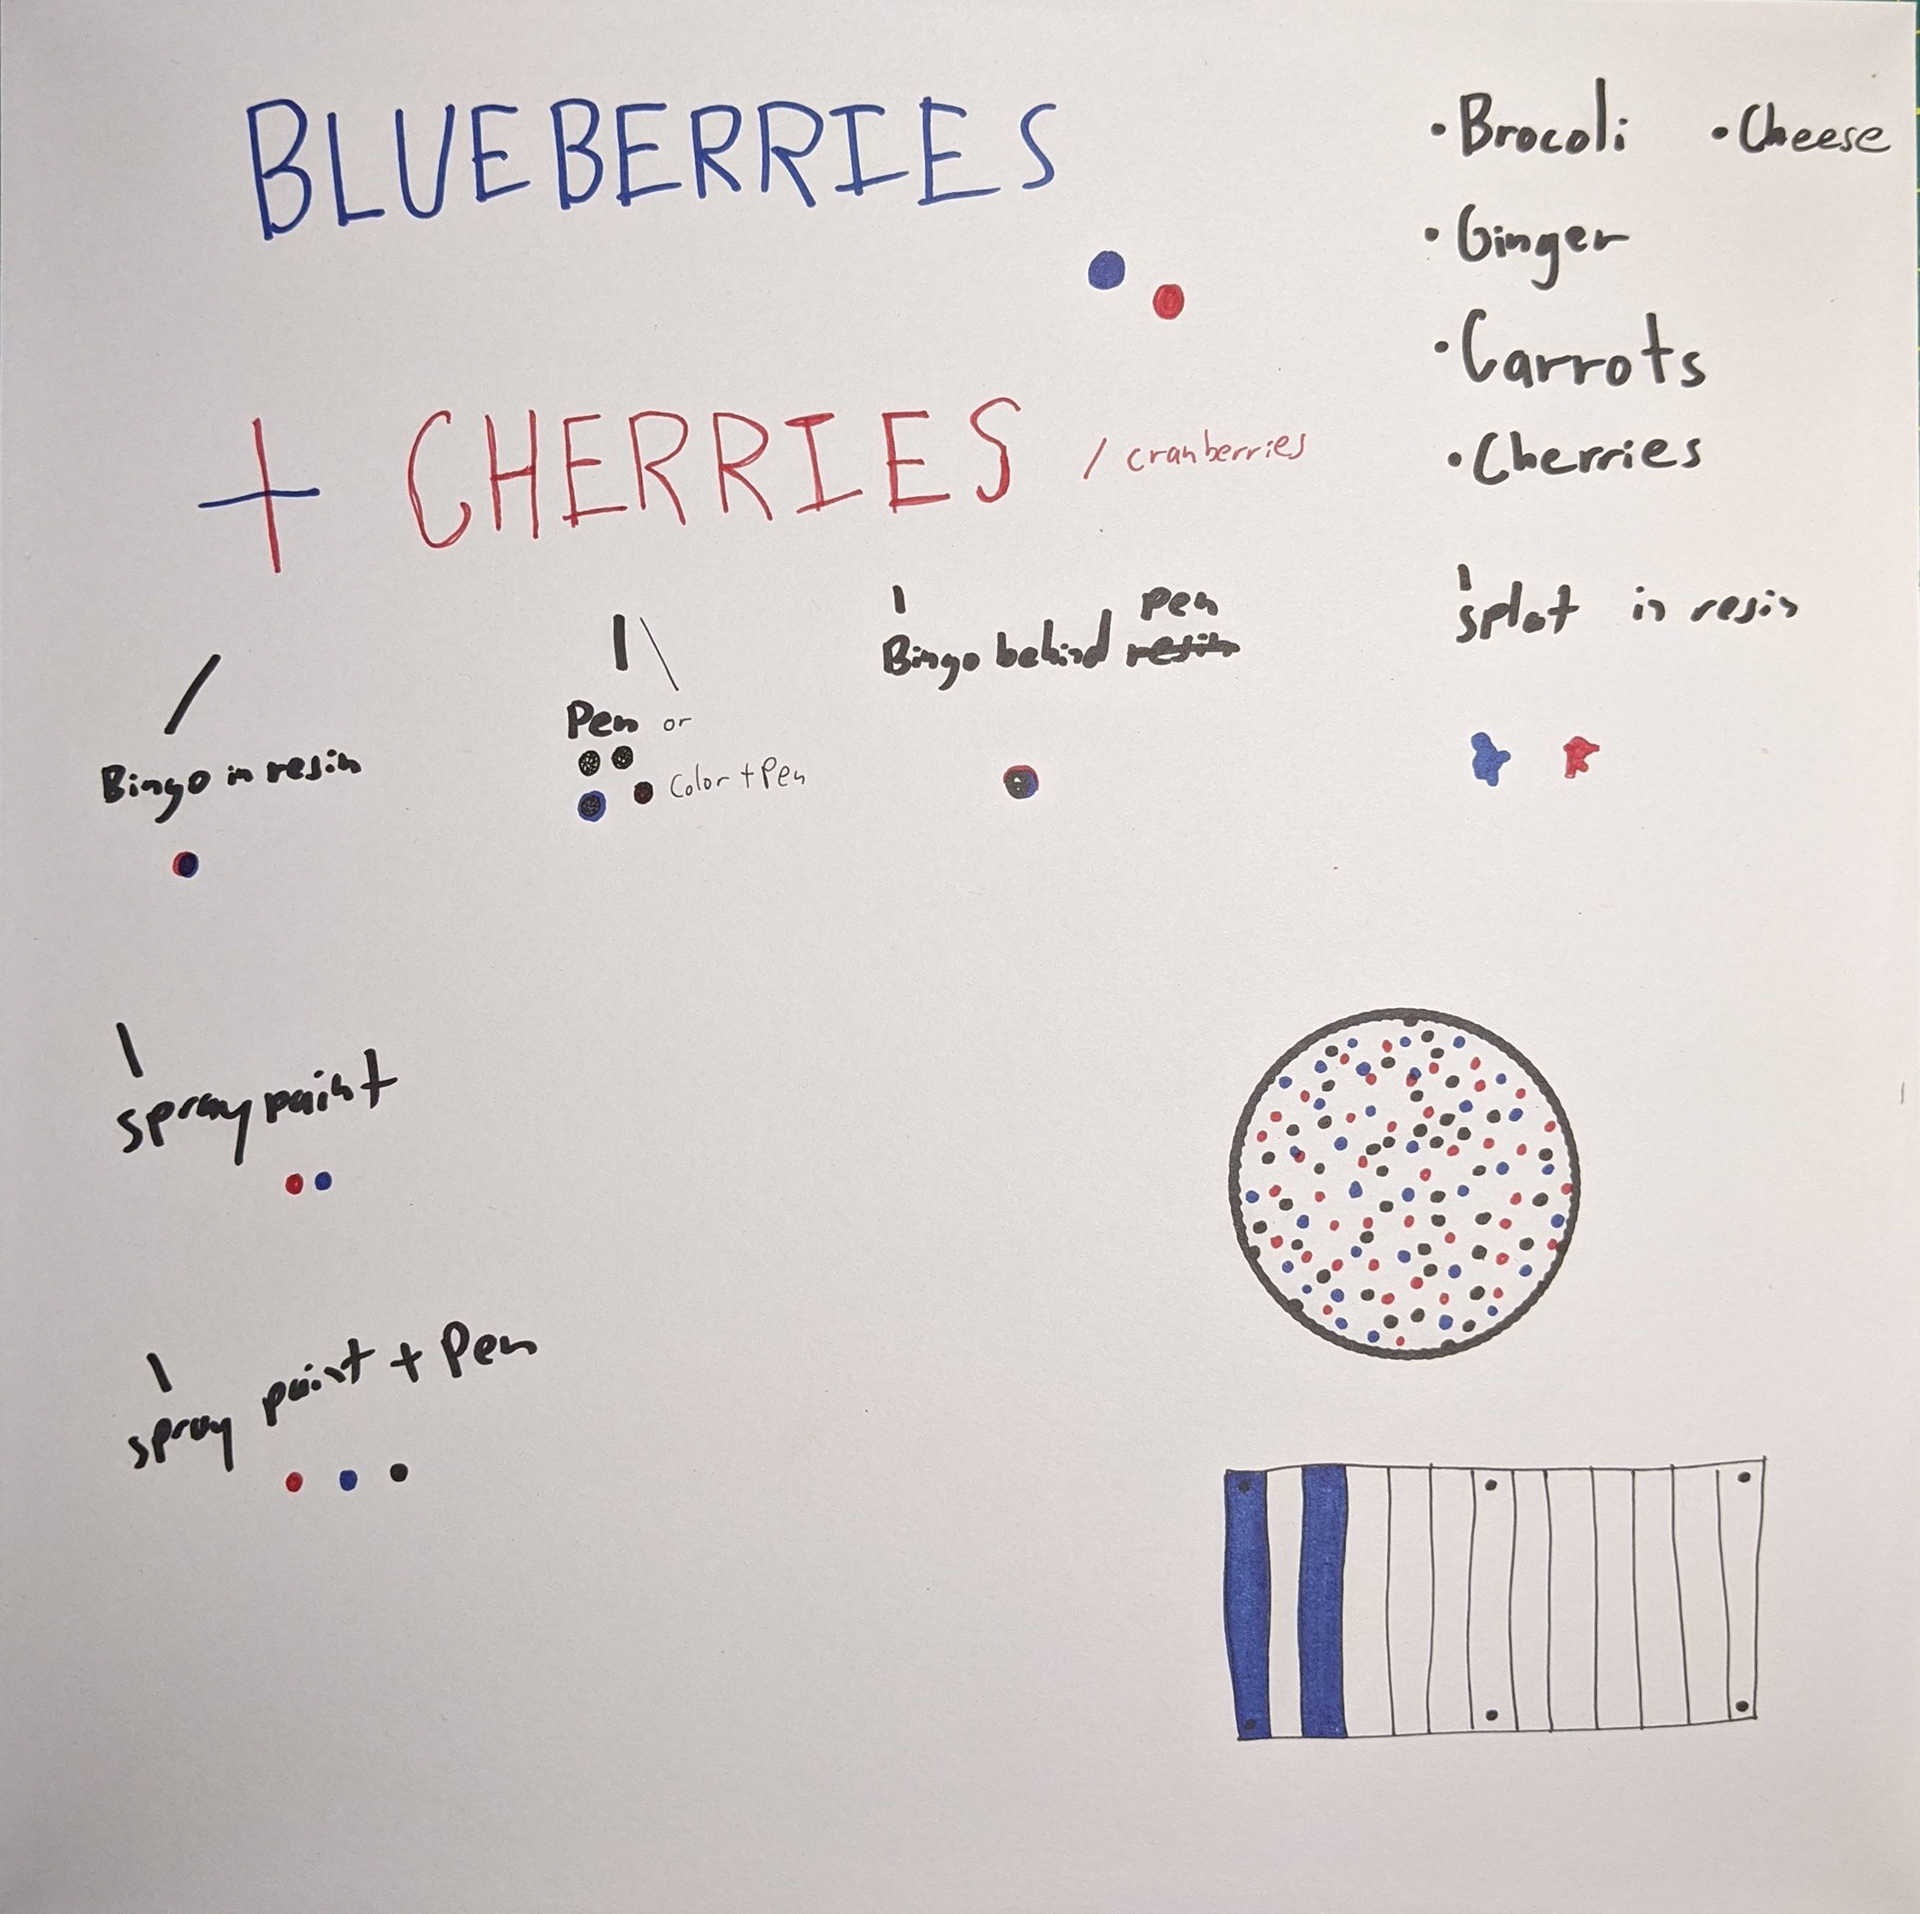 BLUEBERRIES
+ CHERRIES / cranberries
• Brocoli • Cheese
• Ginger
• Carrots
• Cherries
Bingo in resin
Pen or
Color + Pen
Bingo behind pen
splat in resin
spray paint
spray paint + Pen